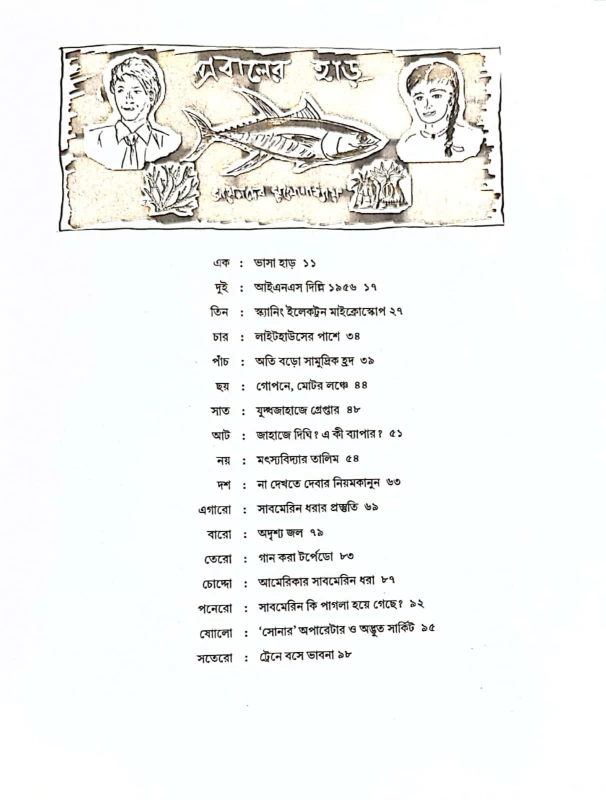 প্রবালের হাড়
এক : ভাসা হাড় ১১
দুই : আইএনএস দিল্লি ১৯৫৬ ১৭
তিন : স্ক্যানিং ইলেকট্রন মাইক্রোস্কোপ ২৭
চার : লাইটহাউসের পাশে ৩৪
পাঁচ : অতি বড়ো সামুদ্রিক হ্রদ ৩৯
ছয় : গোপনে, মোটর লঞ্চে ৪৪
সাত : যুদ্ধজাহাজে গ্রেপ্তার ৪৮
আট : জাহাজে দিঘি? এ কী ব্যাপার? ৫১
নয় : মৎস্যবিদ্যার তালিম ৫৪
দশ : না দেখতে দেবার নিয়মকানুন ৬৩
এগারো : সাবমেরিন ধরার প্রস্তুতি ৬৯
বারো : অদৃশ্য জল ৭৯
তেরো : গান করা টর্পেডো ৮৩
চোদ্দো : আমেরিকার সাবমেরিন ধরা ৮৭
পনেরো : সাবমেরিন কি পাগলা হয়ে গেছে? ৯২
ষোলো : ‘সোনার’ অপারেটার ও অদ্ভূত সার্কিট ৯৫
সতেরো : ট্রেনে বসে ভাবনা ৯৮